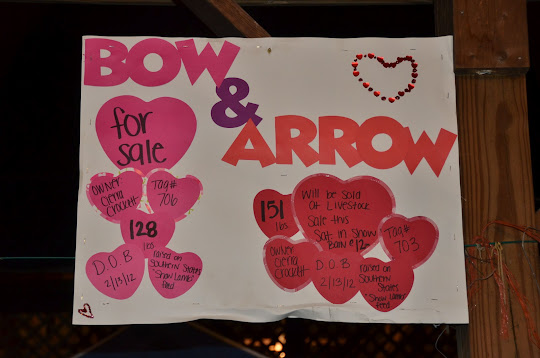 BOW
&
ARROW
for
sale
owner
Cierra
Crockett
Tag#
706
128
lbs
D.O.B
2/13/12
raised on
Southern States
"Show Lambs"
feed
151
lbs.
Will be sold
at Livestock
Sale this
Sat. in Show
Barn @ 12
owner
Cierra
Crockett
D.O.B
2/13/12
Tag#
703
raised on
Southern States
"Show Lambs"
feed